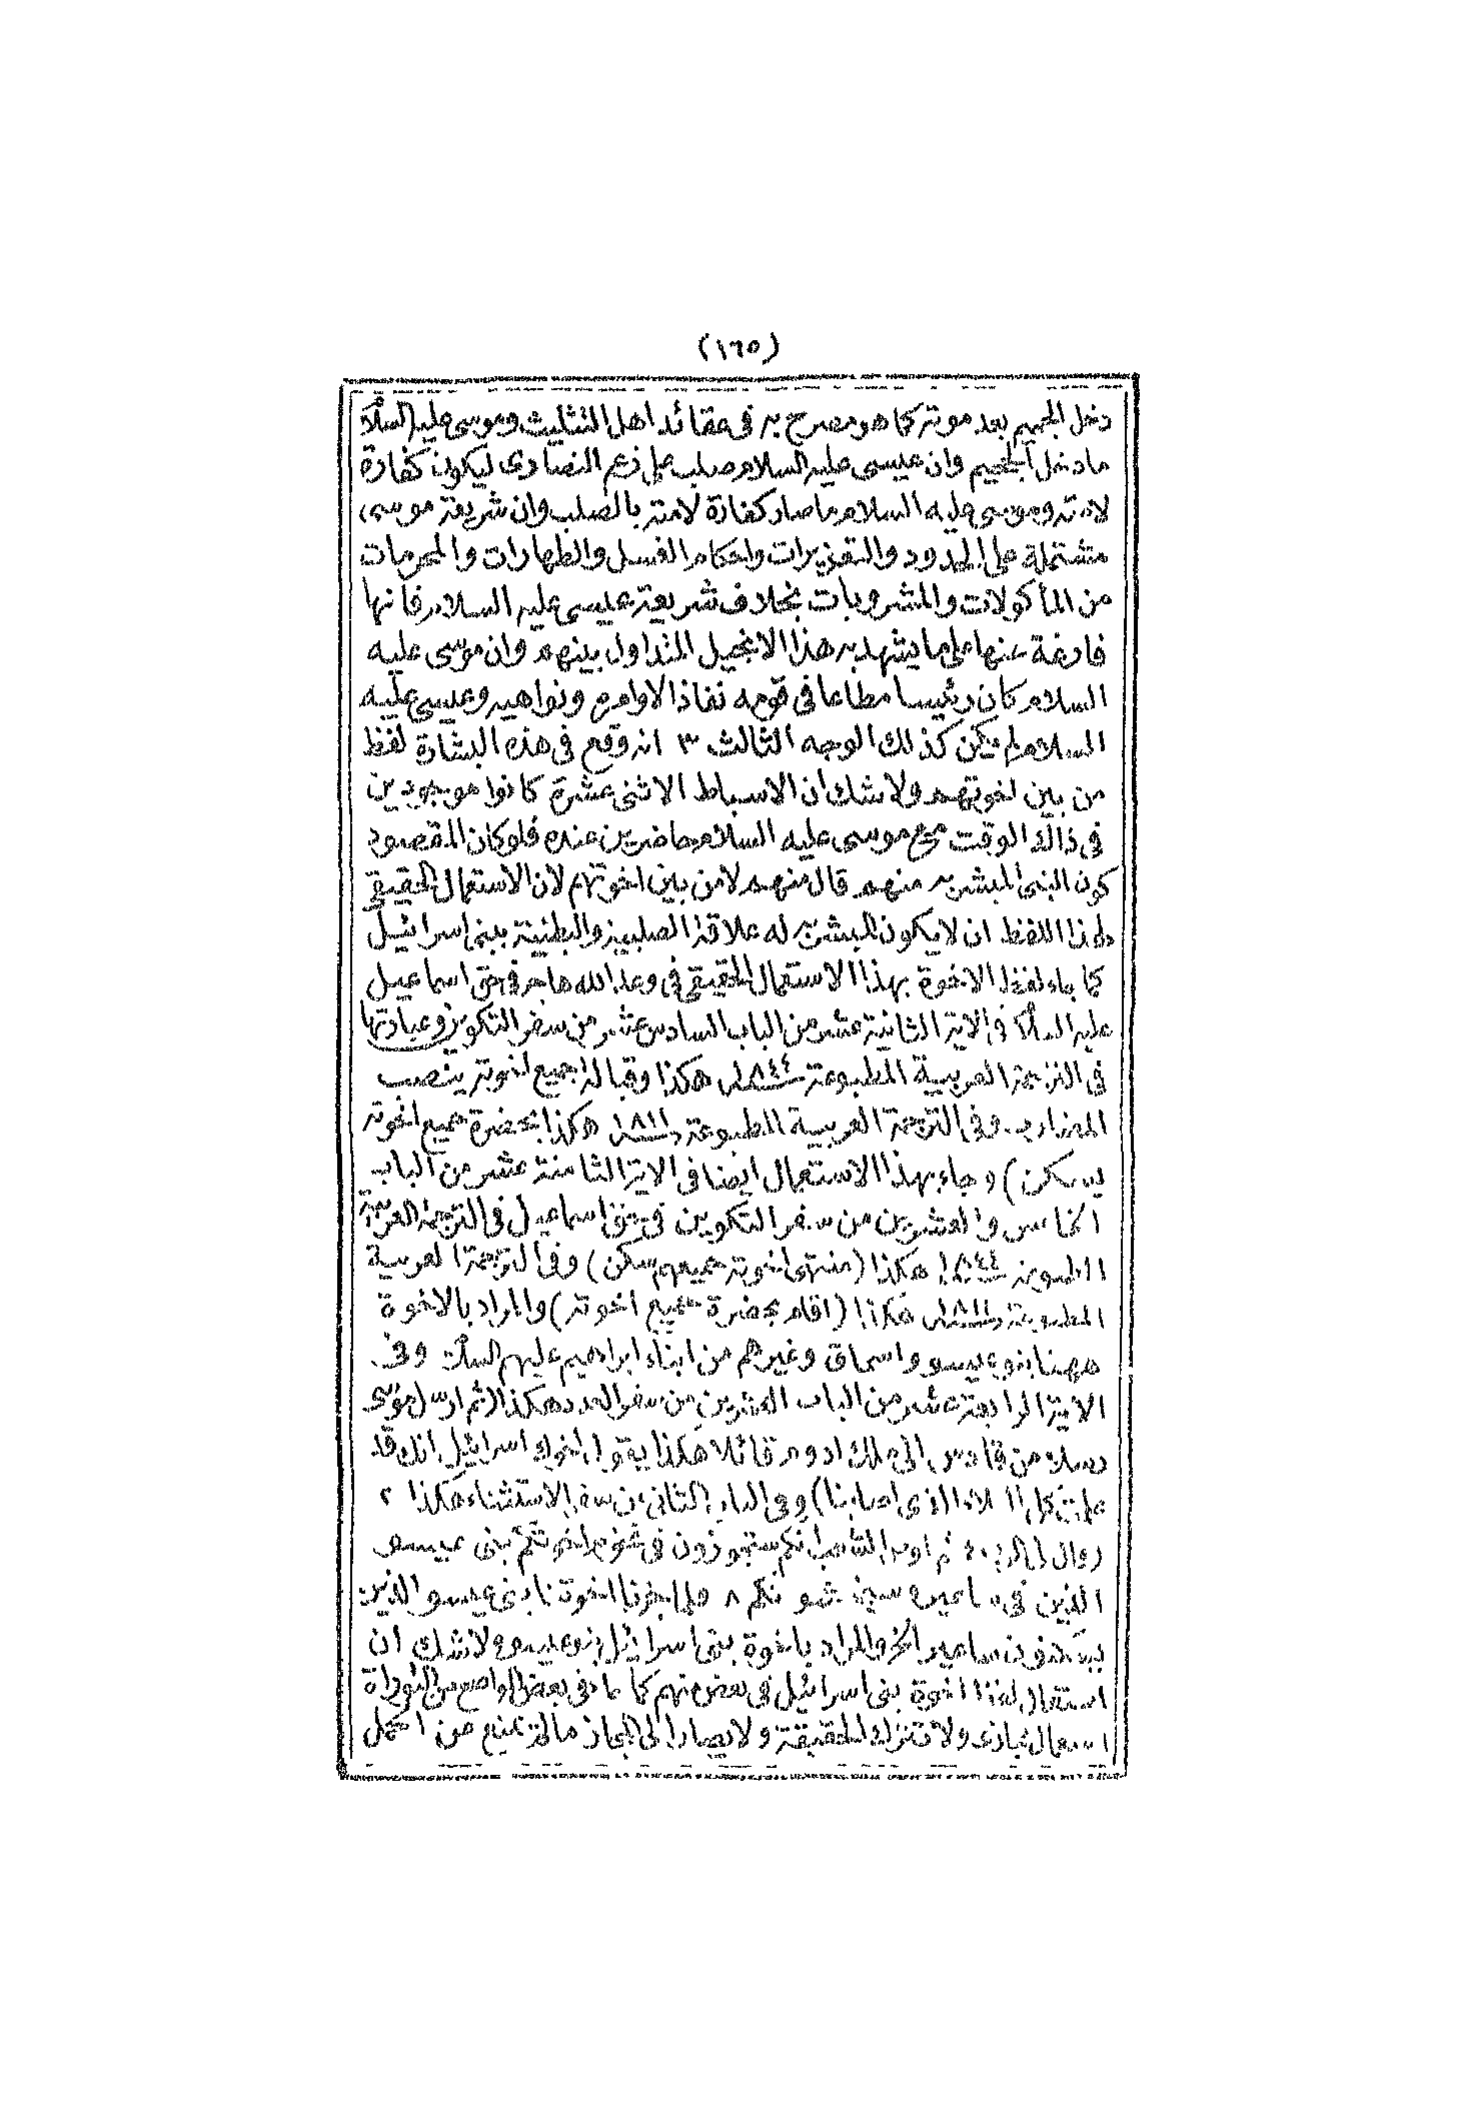 (١٦٥)
دخل الجحيم بعد موته كما هو مصرح به فى عقائد اهل التثليث وموسى عليه السلام
ما دخل الجحيم وان عيسى عليه السلام صلب على زعم النصارى ليكون كفارة
لامته وموسى عليه السلام ما صار كفارة لامته بالصلب وان شريعة موسى
مشتملة على الحدود والتعزيرات واحكام الغسل والطهارات والمحرمات
من المأكولات والمشروبات بخلاف شريعة عيسى عليه السلام فانها
فارغة عنها على ما يشهد به هذا الانجيل المتداول بينهم وان موسى عليه
السلام كان رئيسا مطاعا فى قومه نفاذا لاوامره ونواهيه وعيسى عليه
السلام لم يكن كذلك الوجه الثالث ٣ انه وقع فى هذه البشارة لفظ
من بين اخوتهم ولا شك ان الاسباط الاثنى عشرة كانوا موجودين
فى ذالك الوقت مع موسى عليه السلام حاضرين عنده فلو كان المقصود
كون النبى المبشر به منهم قال منهم لا من بين اخوتهم لان الاستعمال الحقيقى
لهذا اللفظ ان لا يكون المبشر به له علاقة الصلبية والبطنية ببنى اسرائيل
كما جاء لفظ الاخوة بهذا الاستعمال الحقيقى فى وعد الله هاجر فى حق اسماعيل
عليه السلام فى الاية الثانية عشر من الباب السادس عشر من سفر التكوين وعبارتها
فى الترجمة العربية المطبوعة ١٨٤٤ هكذا وقبالة جميع اخوته ينصب
المضارب وفى الترجمة العربية المطبوعة ١٨١١ هكذا بحضرة جميع اخوته
يسكن) وجاء بهذا الاستعمال ايضا فى الاية الثامنة عشر من الباب
الخامس والعشرين من سفر التكوين فى حق اسماعيل فى الترجمة العربية
المطبوعة ١٨٤٤ هكذا (منتهى اخوته جميعهم سكن) وفى الترجمة العربية
المطبوعة ١٨١١ هكذا (اقام بحضرة جميع اخوته) والمراد بالاخوة
ههنا بنو عيسو واسحاق وغيرهم من ابناء ابراهيم عليهم السلام وفى
الاية الرابعة عشر من الباب العشرين من سفر العدد هكذا (ثم ارسل موسى
رسلا من قادس الى ملك ادوم قائلا هكذا يقول اخوك اسرائيل انك قد
علمت كل البلاء الذى اصابنا) وفى الباب الثانى من سفر الاستثناء هكذا ٢
وقال لى الرب ٤ ثم اوص الشعب انكم ستجوزون فى تخوم اخوتكم بنى عيسو
الذين فى ساعير وسيخشونكم ٨ فلما جزنا اخوتنا بنى عيسو الذين
يسكنون ساعير الخ والمراد باخوة بنى اسرائيل بنو عيسو ولا شك ان
استعمال لفظ اخوة بنى اسرائيل فى بعض منهم كما جاء فى بعض المواضع من التوراة
استعمال مجازى ولا تترك الحقيقة ولا يصار الى المجاز ما لم يمنع من الحمل